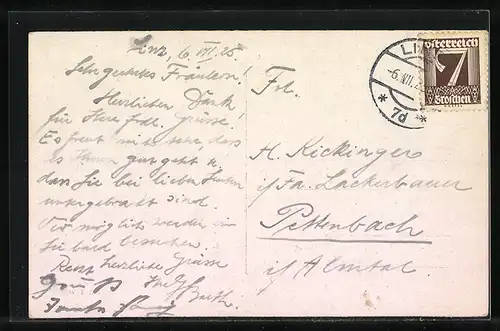 Linz, 6. VII. 26.
Sehr geehrtes Fräulein!
Herzlichen Dank
für Ihre frdl. Grüsse.
Es freut mich sehr, dass
es Ihnen gut geht u.
dass Sie bei lieben Leuten
untergebracht sind.
Wir werden
Sie bald besuchen.
Recht herzliche Grüsse
Frl.
H. Kickinger
b/ Fa. Lackerbauer
Pettenbach
i/ Almtal
LIN
-6.VII.2
* 7d *
Österreich
7
Groschen